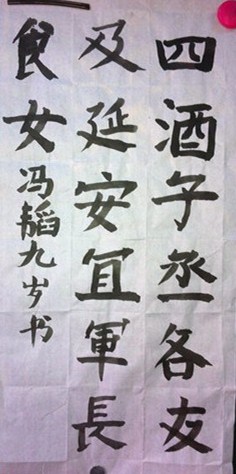 四酒子丞各友
及延安宜軍長
食女
冯韬九岁书